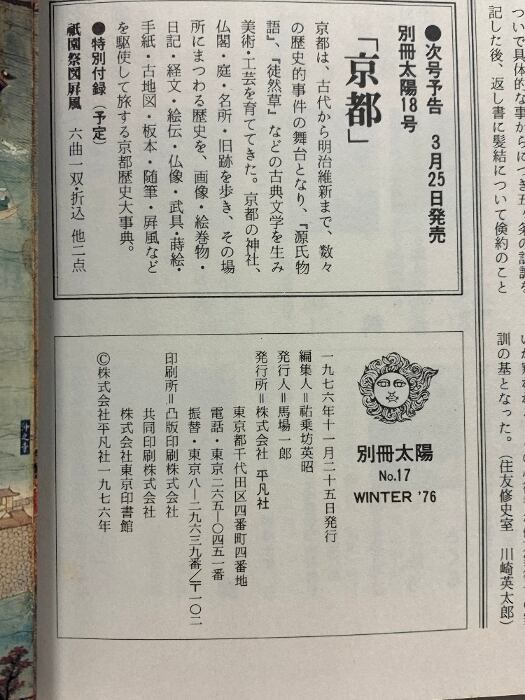 ついで具体的な事がらにつき五
記した後、返し書に髪結について倹約のこと
訓の基となった。（住友修史室　川崎英太郎）
●次号予告　3月25日発売
別冊太陽18号
「京都」
京都は、古代から明治維新まで、数々
の歴史的事件の舞台となり、『源氏物
語』、『徒然草』などの古典文学を生み
美術・工芸を育ててきた。京都の神社、
仏閣・庭・名所・旧跡を歩き、その場
所にまつわる歴史を、画像・絵巻物・
日記・経文・絵伝・仏像・武具・蒔絵・
手紙・古地図・板本・随筆・屏風など
を駆使して旅する京都歴史大事典。
●特別付録（予定）
祇園祭図屏風　六曲一双・折込　他二点
別冊太陽
No.17
WINTER '76
一九七六年十一月二十五日発行
編集人＝祐乗坊英昭
発行人＝馬場一郎
発行所＝株式会社　平凡社
東京都千代田区四番町四番地
電話・東京二六五―〇四五一番
振替・東京八―二九六三九番／〒一〇二
印刷所＝凸版印刷株式会社
共同印刷株式会社
株式会社東京印書館
©株式会社平凡社一九七六年